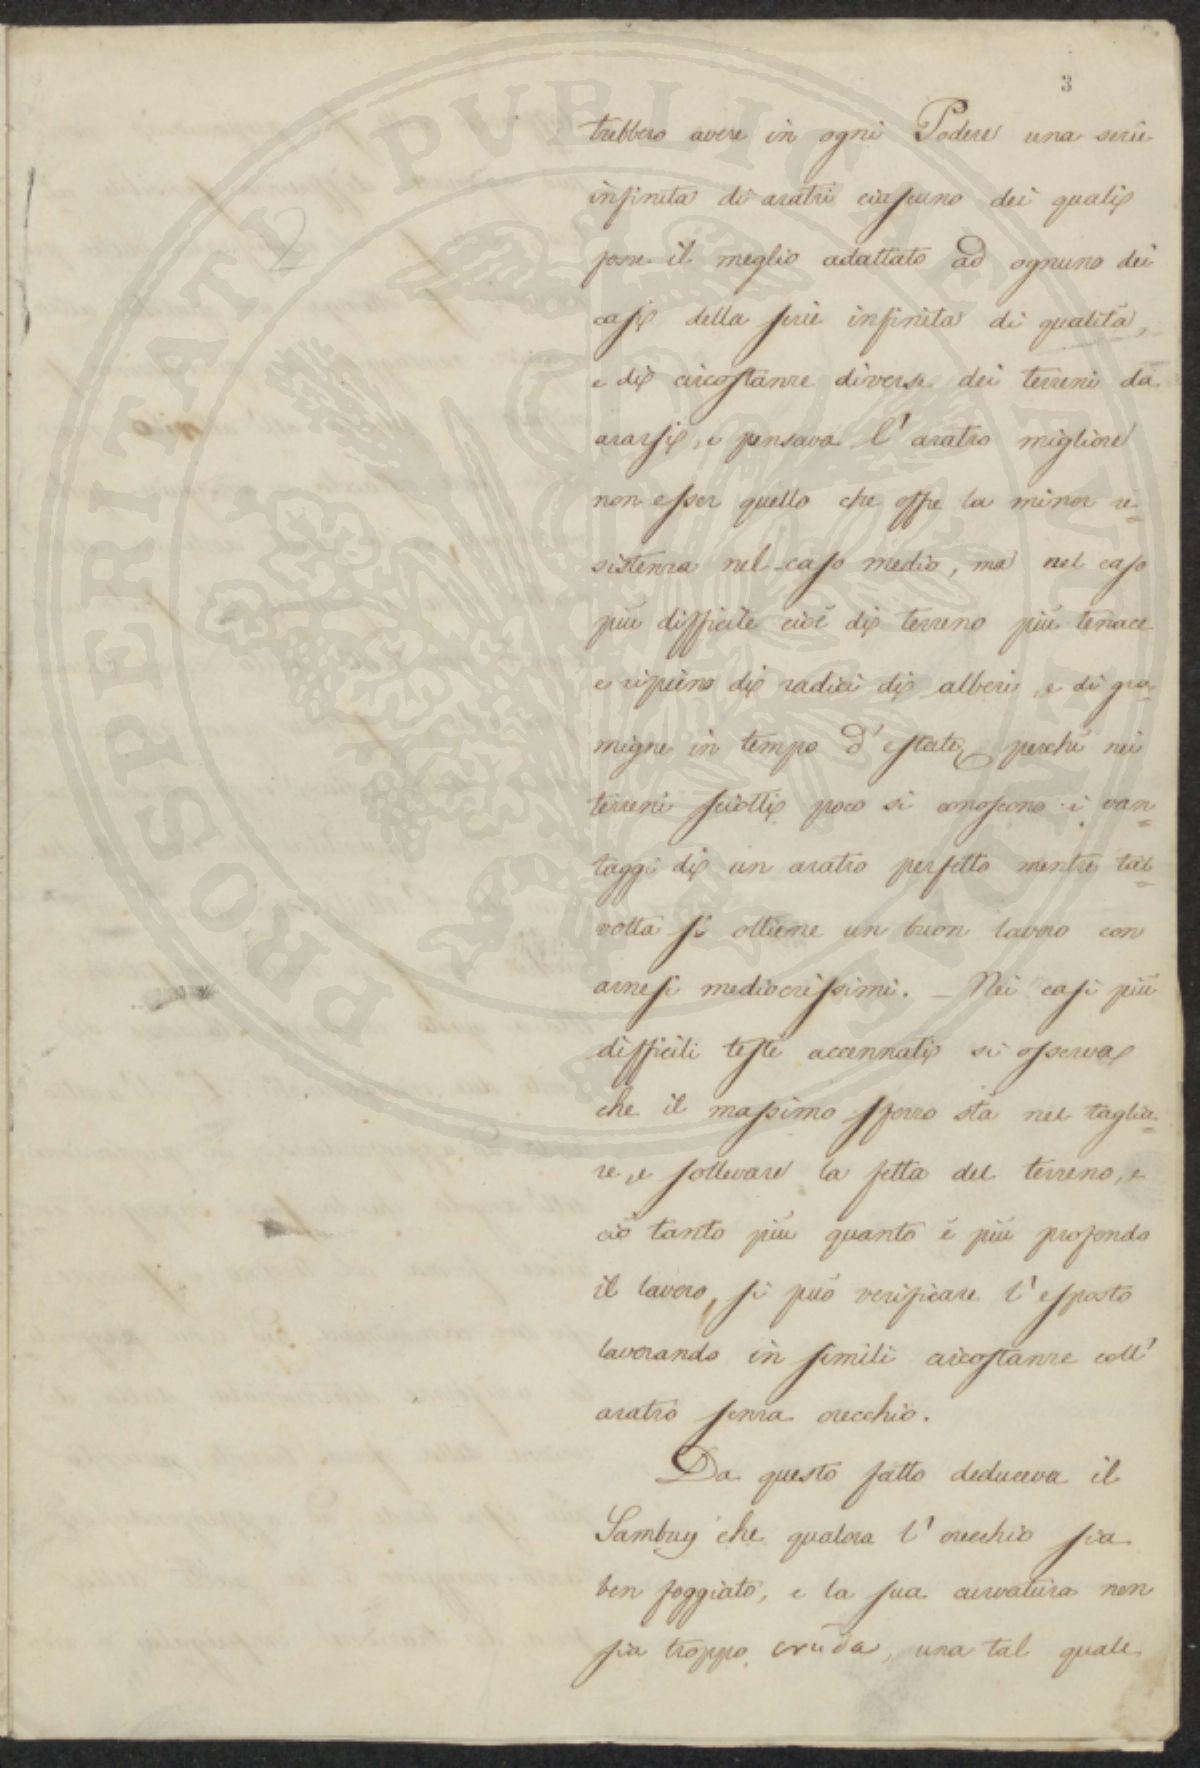 3
trebbero avere in ogni Podere una serie
infinita di aratri ciascuno dei quali
fosse il meglio adattato ad ognuno dei
casi della serie infinita di qualità,
e di circostanze diverse dei terreni da
ararsi, e pensava l'aratro migliore
non esser quello che offre la minor re=
sistenza nel caso medio, ma nel caso
più difficile cioè di terreno più tenace
e ripieno di radici di alberi, e di gra=
migne in tempo d'estate, perchè nei
terreni sciolti poco si conoscono i van=
taggi di un aratro perfetto mentre tal=
volta si ottiene un buon lavoro con
arnesi mediocrissimi. — Nei casi più
difficili testè accennati si osserva
che il massimo sforzo sta nel taglia=
re, e sollevare la fetta del terreno, e
ciò tanto più quanto è più profondo
il lavoro, si può verificare l'esposto
lavorando in simili circostanze coll'
aratro senza orecchio.
Da questo fatto deduceva il
Sambuy che qualora l'orecchio sia
ben foggiato, e la sua curvatura non
sia troppo cruda, una tal quale
PROSPERITATI PUBLICAE